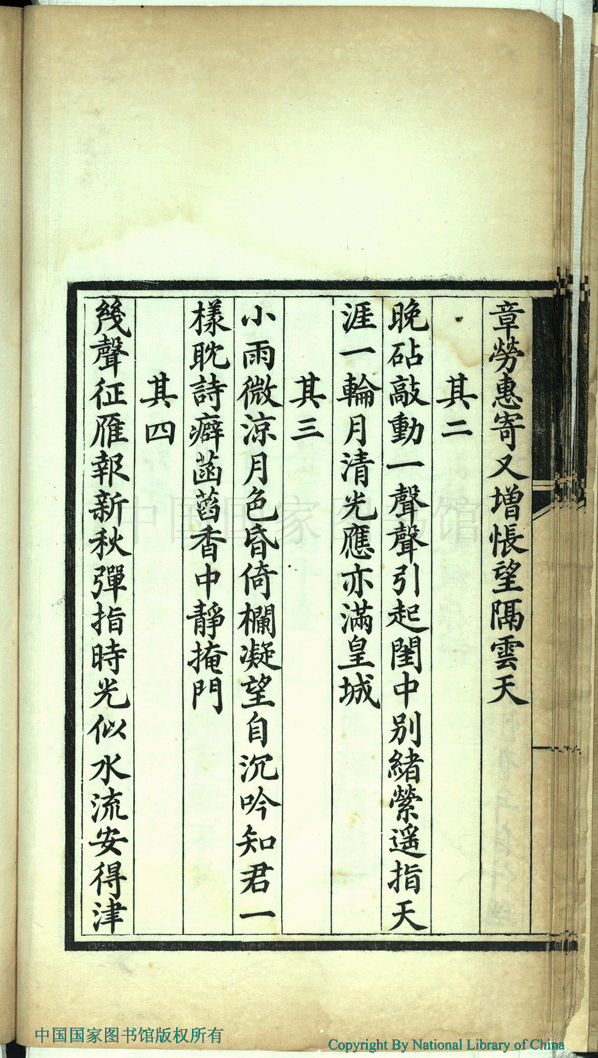 章勞惠寄又增悵望隔雲天
其二
晚砧敲動一聲聲引起閨中別緒縈遥指天
涯一輪月清光應亦滿皇城
其三
小雨微涼月色昏倚欄凝望自沉吟知君一
樣耽詩癖菡萏香中靜掩門
其四
幾聲征雁報新秋彈指時光似水流安得津
中国国家图书馆
中国国家图书馆版权所有
Copyright By National Library of China